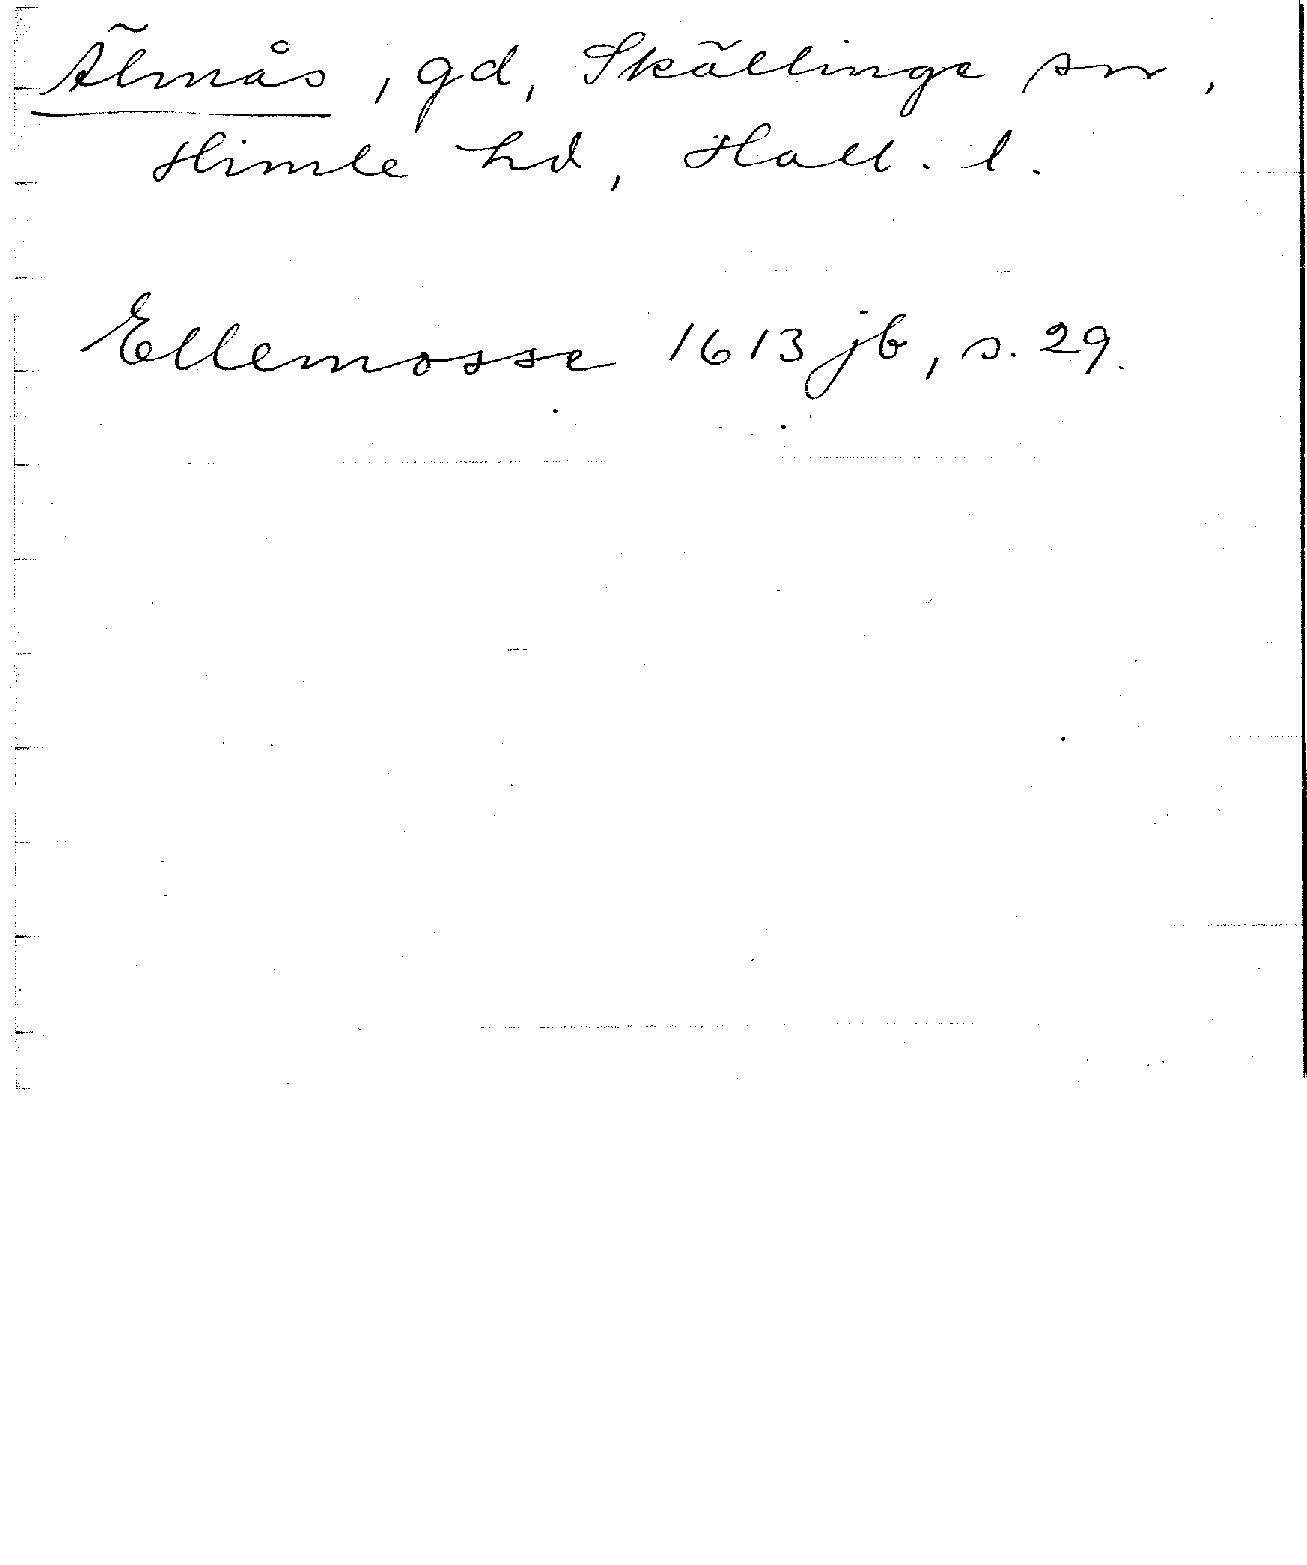 Älmås, gd, Skällinge sn,
Himle hd, Hall. l.
Ellemosse 1613 jb, s. 29.